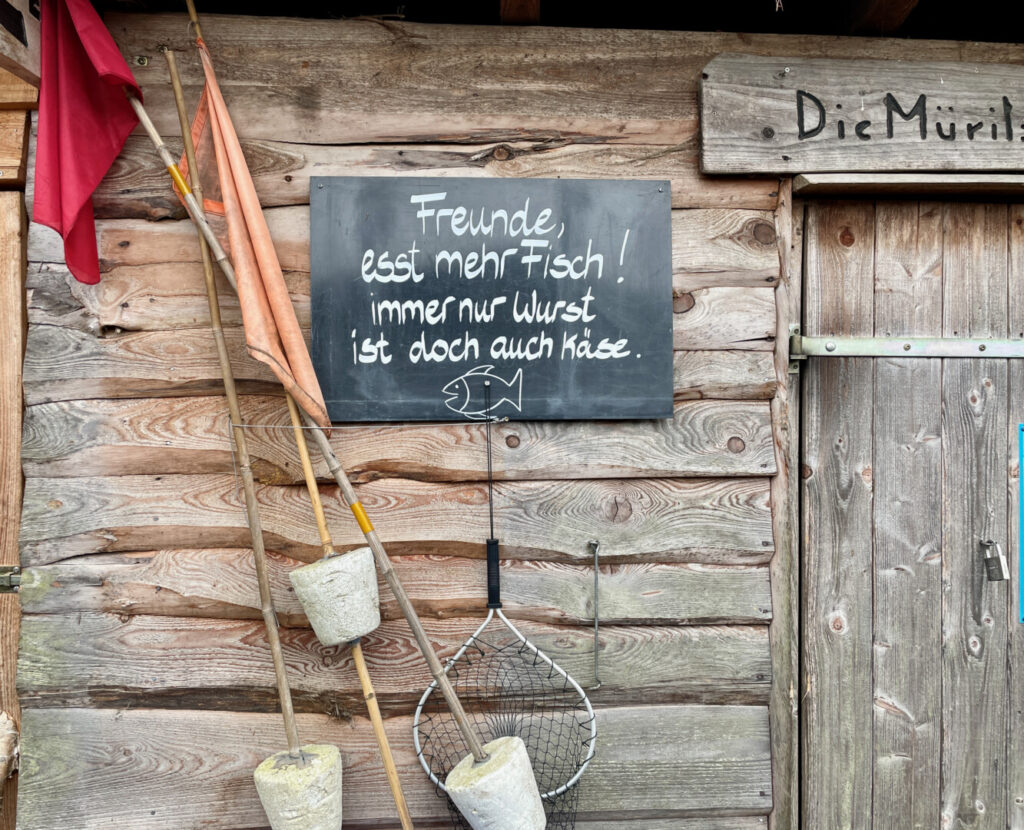 Freunde,
esst mehr Fisch!
immer nur Wurst
ist doch auch Käse.
Die